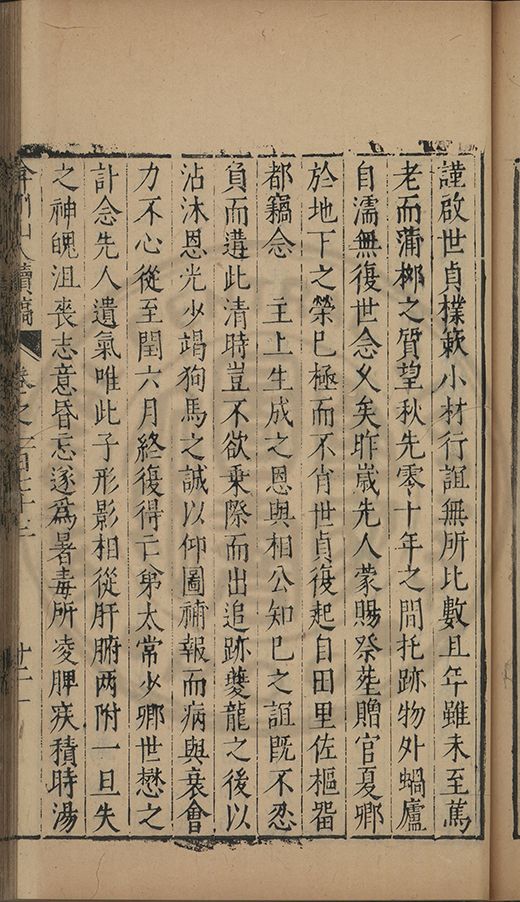 謹啟世貞樸簌小材行誼無所比數且年雖未至篤
老而蒲桞之質望秋先零十年之間托跡物外蝸廬
自濡無復世念乆矣昨歳先人蒙賜祭塟贈官夏卿
於地下之榮已極而不肖世貞復起自田里佐樞畱
都竊念　主上生成之恩與相公知已之誼既不忍
負而遘此清時豈不欲乗際而出追跡夔龍之後以
沾沐恩光少竭狗馬之誠以仰圖補報而病與衰會
力不心從至閏六月終復得亡弟太常少卿世懋之
訃念先人遺氣唯此子形影相從肝腑两附一旦失
之神魄沮喪志意昏忘遂為暑毒所凌脾疾積時湯
弇州山人續稿 卷之一百七十